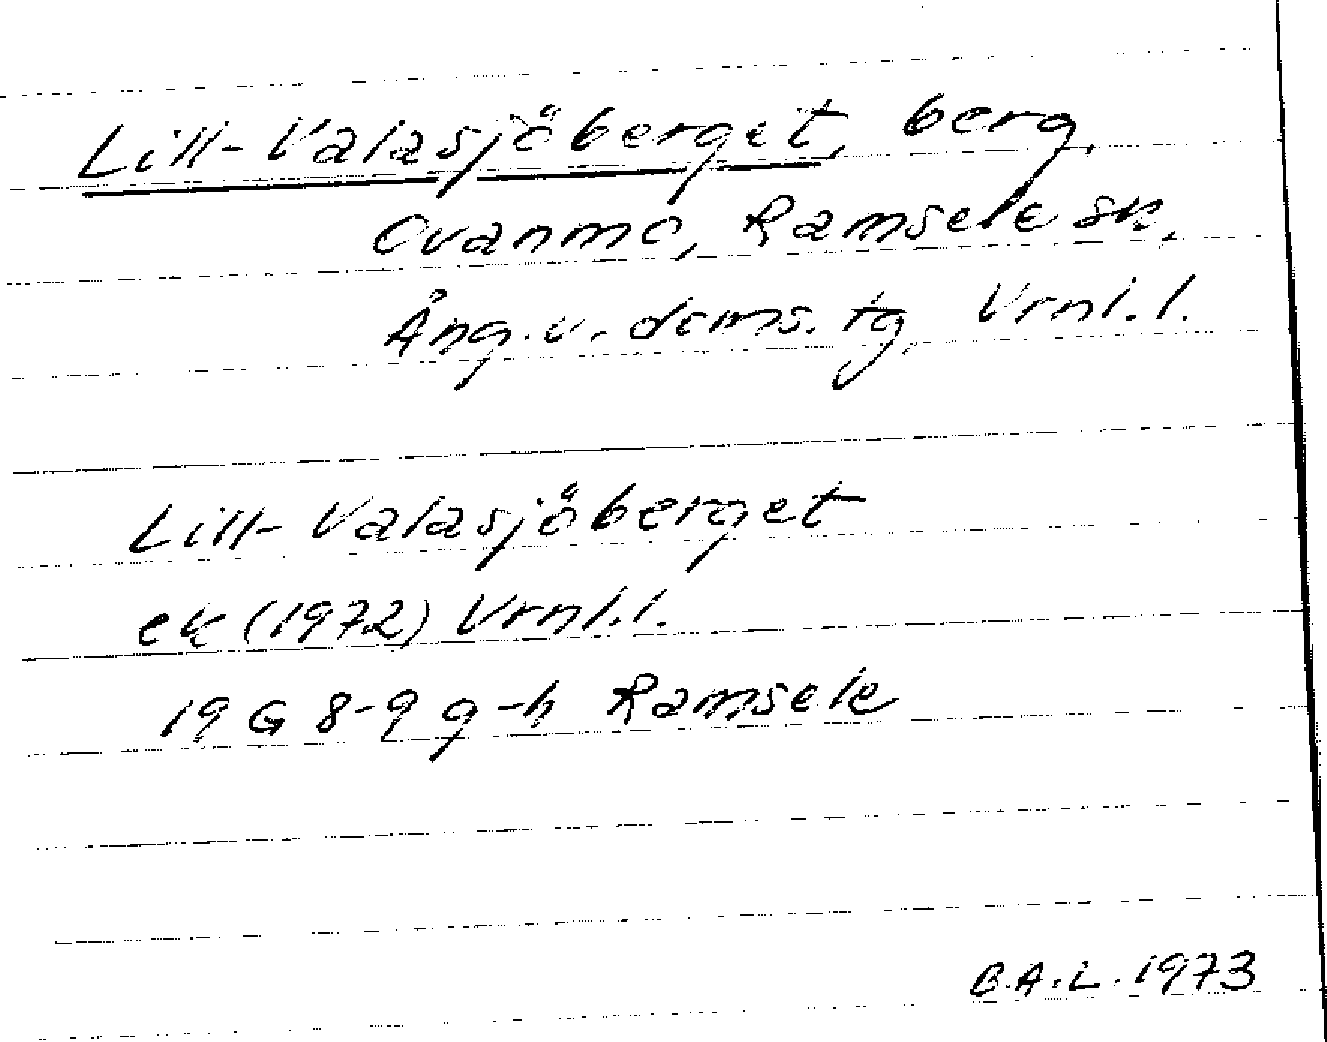 Lill-Valasjöberget, berg,
Ovanmo, Ramsele sk,
Ång. v. doms. tg, Vrnl. l.
Lill-Valasjöberget
ek (1972) Vrnl. l.
19 G 8-9 g-h Ramsele
B.A.L. 1973